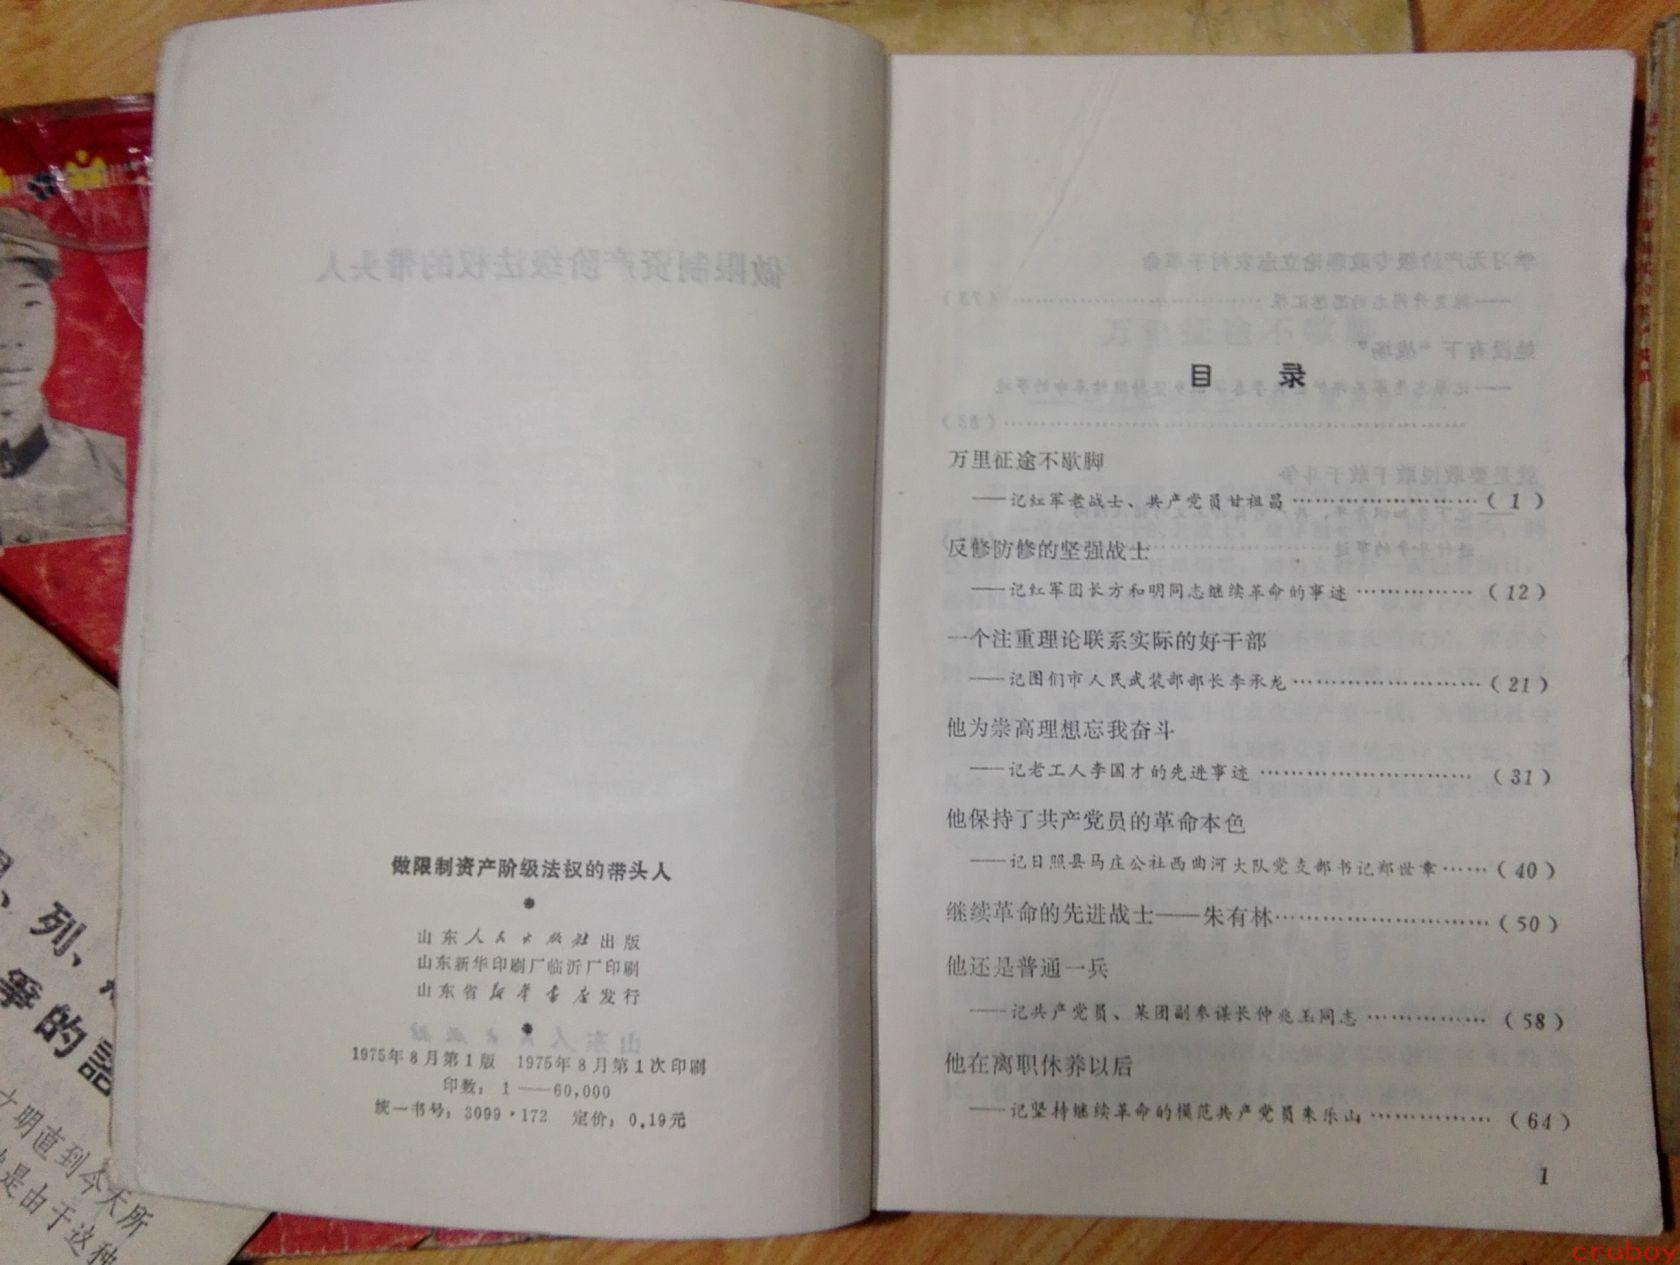 做限制资产阶级法权的带头人
●
山东人民出版社出版
山东新华印刷厂临沂厂印刷
山东省新华书店发行
●
1975年8月第1版 1975年8月第1次印刷
印数：1——60,000
统一书号：3099·172 定价：0.19元
目 录
万里征途不歇脚
——记红军老战士、共产党员甘祖昌……………………（1）
反修防修的坚强战士
——记红军团长方和明同志继续革命的事迹……………（12）
一个注重理论联系实际的好干部
——记图们市人民武装部部长李承龙……………………（21）
他为崇高理想忘我奋斗
——记老工人李国才的先进事迹………………………（31）
他保持了共产党员的革命本色
——记日照县马庄公社西曲河大队党支部书记郑世章……（40）
继续革命的先进战士——朱有林………………………（50）
他还是普通一兵
——记共产党员、某团副参谋长仲兆玉同志……………（58）
他在离职休养以后
——记坚持继续革命的模范共产党员朱乐山……………（64）
1
列、
争的
明直到今天所
是由于这种
cruboy